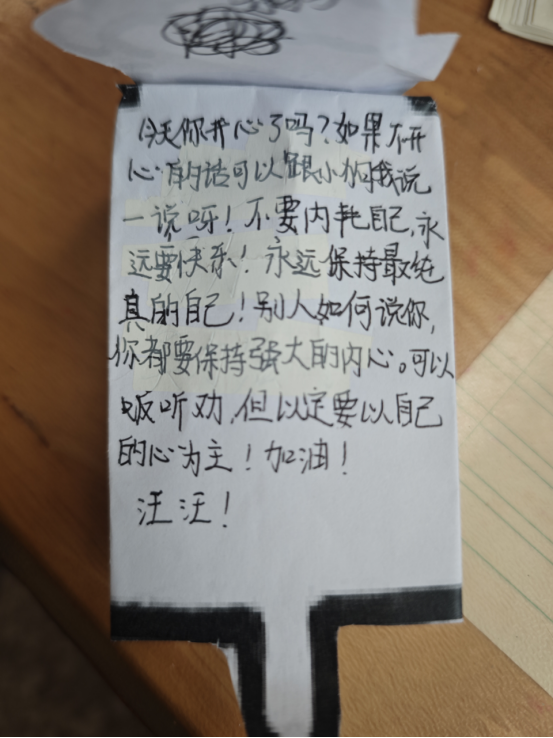 今天你开心了吗？如果不开
心的话可以跟小狗我说
一说呀！不要内耗自己，永
远要快乐！永远保持最纯
真的自己！别人如何说你，
你都要保持强大的内心。可以
听劝，但以定要以自己
的心为主！加油！
汪汪！